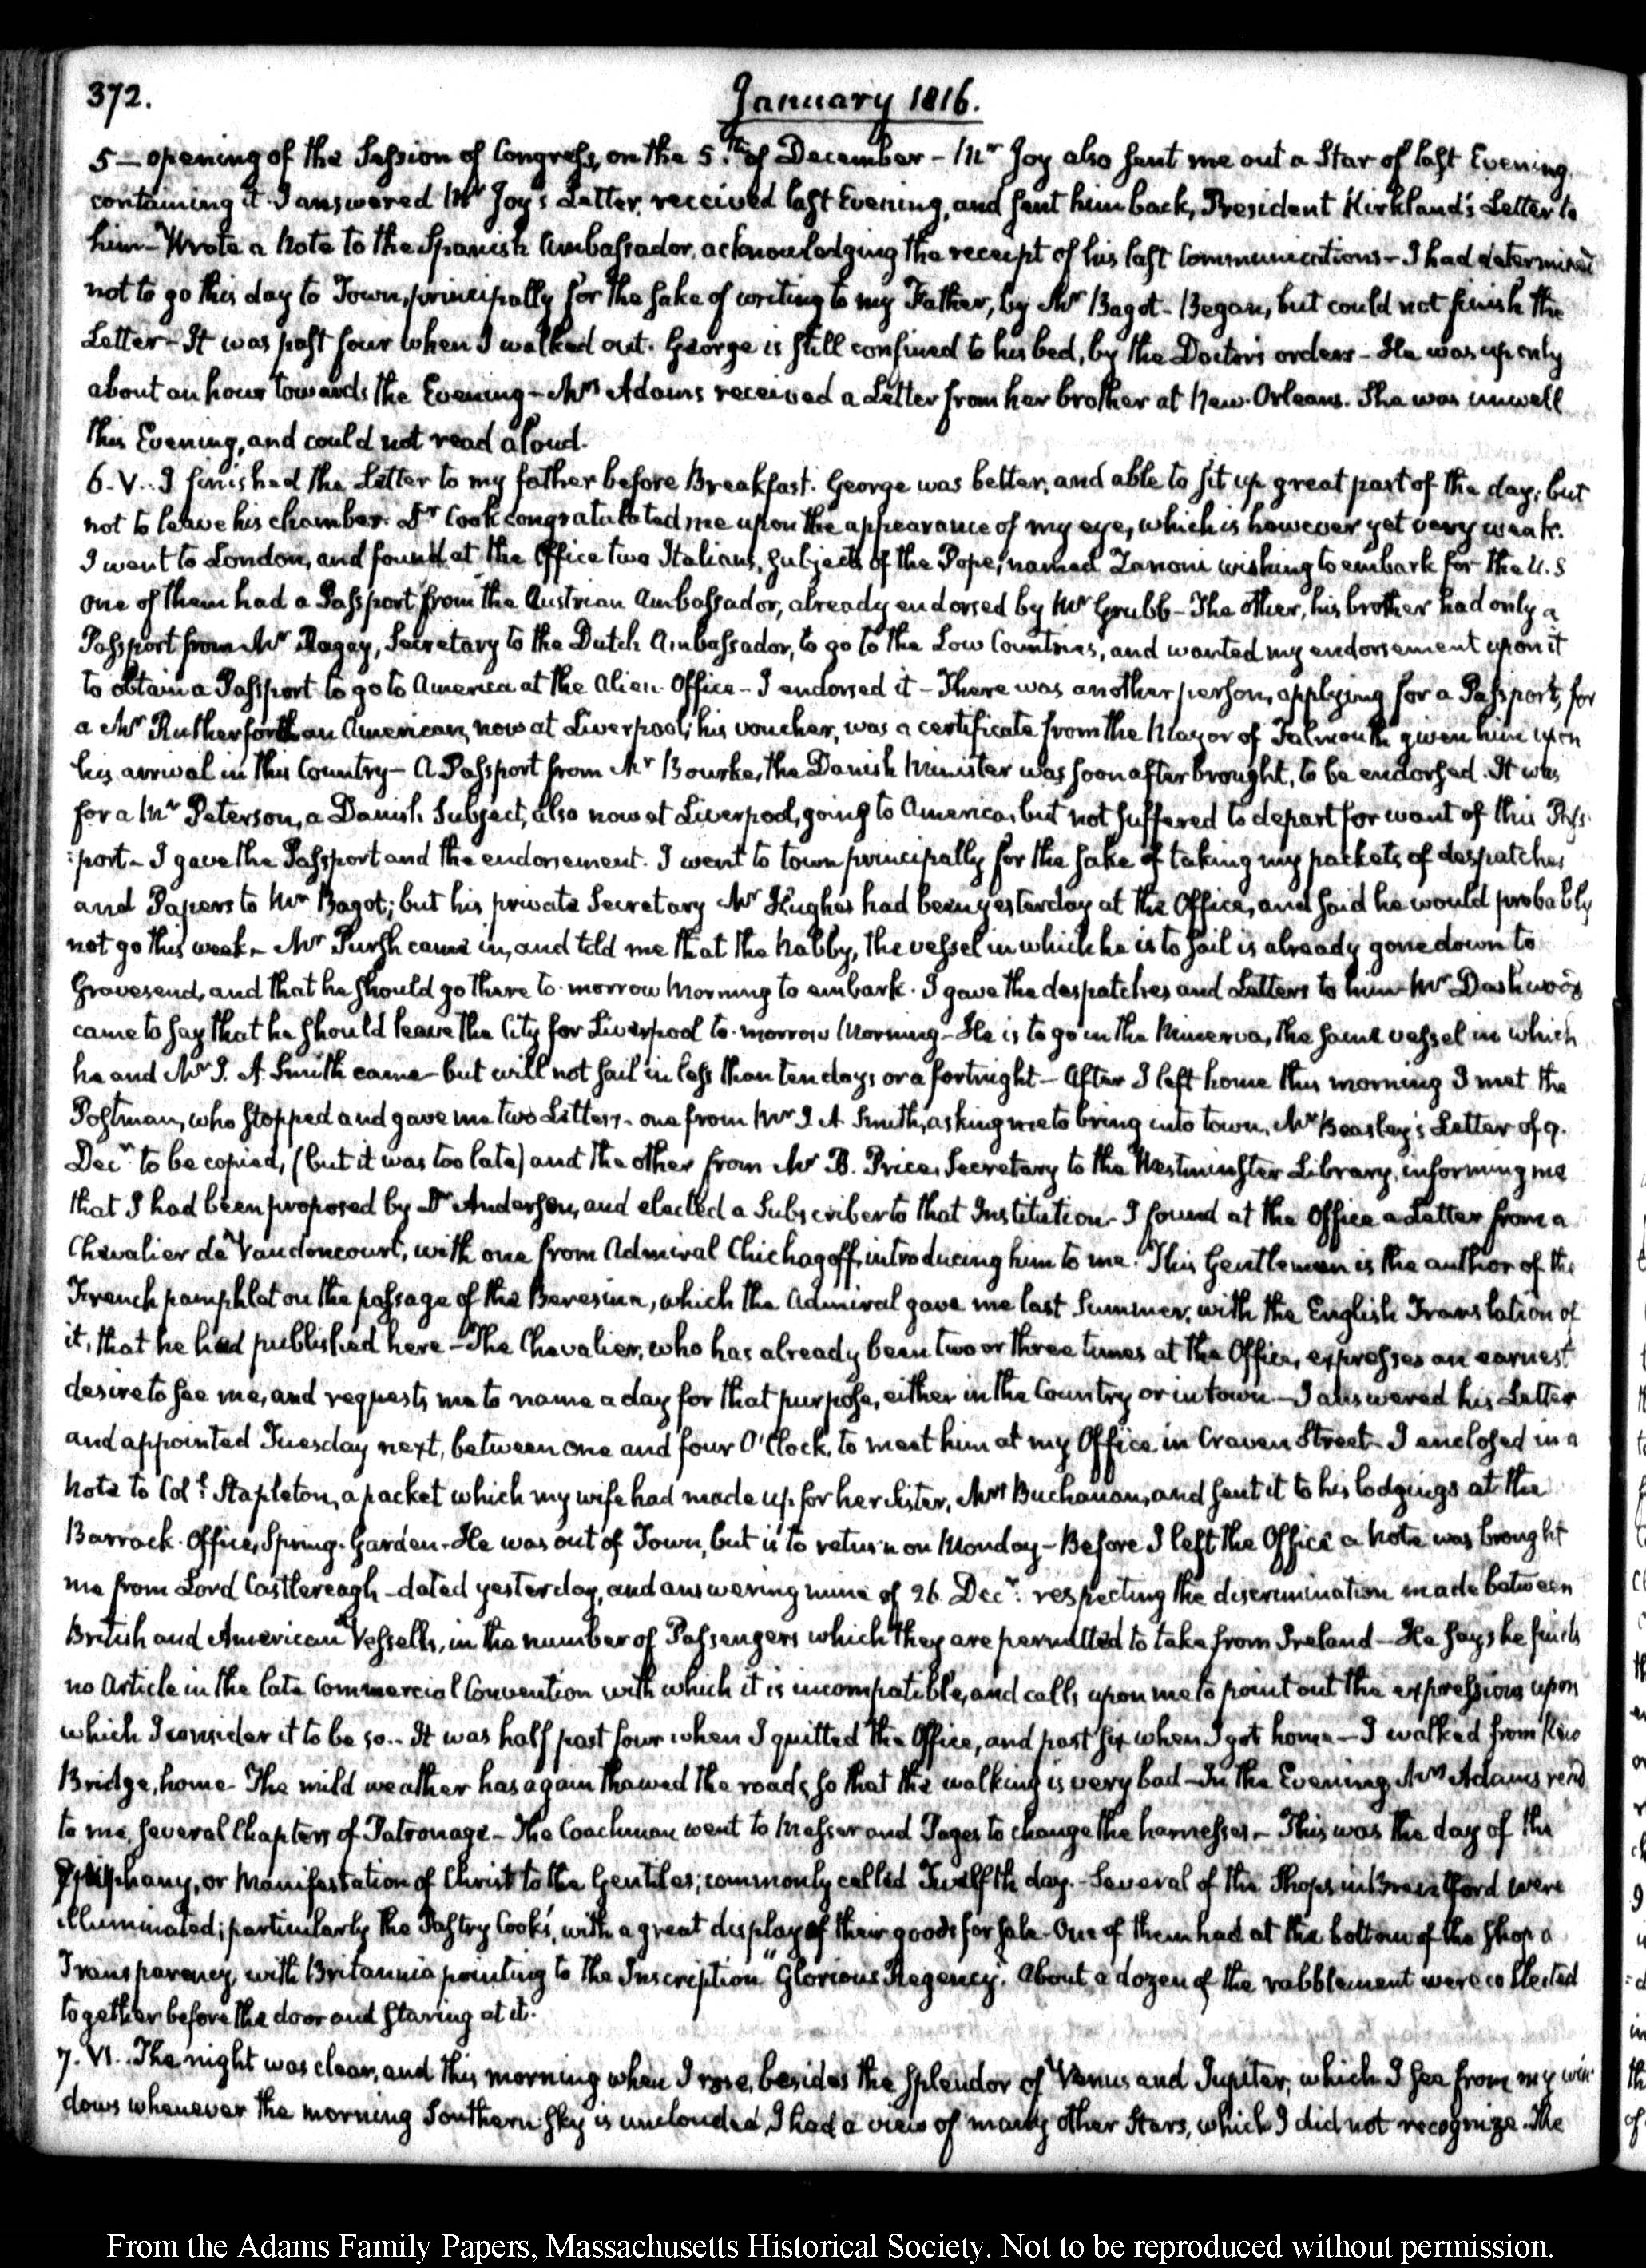 372.
January 1816.
5 — opening of the Session of Congress, on the 5.th of December - Mr Joy also sent me out a Star of last Evening,
containing it. I answered Mr Joy's Letter, received last Evening, and sent him back, President Kirkland's Letter to
him - Wrote a Note to the Spanish Ambassador, acknowledging the receipt of his last Communications - I had determined
not to go this day to Town, principally for the sake of writing to my Father, by Mr Bagot - Began, but could not finish the
Letter - It was past four when I walked out. George is still confined to his bed, by the Doctor's orders - He was up only
about an hour towards the Evening - Mrs Adams received a Letter from her brother at New-Orleans. She was unwell
this Evening, and could not read aloud.
6. V.. I finished the Letter to my father before Breakfast. George was better, and able to sit up great part of the day; but
not to leave his chamber. Dr Cook congratulated me upon the appearance of my eye, which is however yet very weak.
I went to London, and found at the Office two Italians, subjects of the Pope, named Zanoni wishing to embark for the U.S
one of them had a Passport from the Austrian Ambassador, already endorsed by Mr Grubb - The other, his brother had only a
Passport from Mr Secretary to the Dutch Ambassador, to go to the Low Countries, and wanted my endorsement upon it
to obtain a Passport to go to America at the Alien Office - I endorsed it - There was another person, applying for a Passport, for
a Mr Rutherforth an American, now at Liverpool; his voucher, was a certificate from the Mayor of Falmouth given him upon
his arrival in this Country - A Passport from Mr Bourke, the Danish Minister was soon after brought, to be endorsed. It was
for a Mr Peterson, a Danish Subject, also now at Liverpool, going to America, but not suffered to depart for want of this Pass
:port - I gave the Passport and the endorsement. I went to town principally for the sake of taking my packets of despatches
and Papers to Mr Bagot; but his private Secretary Mr Hughes had been yesterday at the Office, and said he would probably
not go this week - Mr Pursh came in, and told me that the Nabby, the vessel in which he is to sail is already gone down to
Gravesend, and that he should go there to-morrow Morning to embark. I gave the despatches and Letters to him - Mr Dashwood
came to say that he should leave the City for Liverpool to-morrow Morning - He is to go in the Minerva, the same vessel in which
he and Mr J. A. Smith came - but will not sail in less than ten days or a fortnight - After I left home this morning I met the
Postman, who stopped and gave me two Letters - one from Mr J. A. Smith, asking me to bring into town, Mr Beasley's Letter of 9.
Decr to be copied, (but it was too late) and the other from Mr B. Price, Secretary to the Westminster Library, informing me
that I had been proposed by Dr Anderson, and elected a Subscriber to that Institution - I found at the Office a Letter from a
Chevalier de Vaudoncourt, with one from Admiral Chichagoff, introducing him to me. This Gentleman is the author of the
French pamphlet on the passage of the Beresina, which the Admiral gave me last Summer, with the English Translation of
it, that he had published here - The Chevalier, who has already been two or three times at the Office, expresses an earnest
desire to see me, and requests me to name a day for that purpose, either in the Country or in town - I answered his Letter
and appointed Tuesday next, between one and four O'Clock, to meet him at my Office in Craven Street - I enclosed in a
Note to Coll Stapleton, a packet which my wife had made up for her Sister, Mrs Buchanan, and sent it to his lodgings at the
Barrack-Office, Spring-Garden - He was out of Town, but is to return on Monday - Before I left the Office a Note was brought
me from Lord Castlereagh - dated yesterday, and answering mine of 26. Decr: respecting the discrimination made between
British and American Vessells, in the number of Passengers which they are permitted to take from Ireland - He says he finds
no Article in the late Commercial Convention with which it is incompatible, and calls upon me to point out the expressions upon
which I consider it to be so.. It was half past four when I quitted the Office, and past six when I got home - I walked from Kew
Bridge, home - The mild weather has again thawed the roads so that the walking is very bad - In the Evening, Mrs Adams read
to me, several Chapters of Patronage - The Coachman went to Messer and Pages to change the harnesses - This was the day of the
Epiphany, or Manifestation of Christ to the Gentiles; commonly called Twelfth day. - Several of the Shops in Brentford were
illuminated; particularly the Pastry Cooks', with a great display of their goods for sale - One of them had at the bottom of the Shop a
Transparency, with Britannia pointing to the Inscription "Glorious Regency". About a dozen of the rabblement were collected
together before the door and staring at it.
7. VI.. The night was clear, and this morning when I rose, besides the splendor of Venus and Jupiter, which I see from my win
dows whenever the morning Southern sky is unclouded, I had a view of many other Stars, which I did not recognize. The
From the Adams Family Papers, Massachusetts Historical Society. Not to be reproduced without permission.